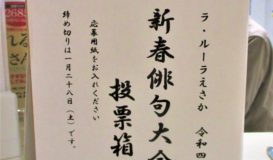 ラ・ルーラえさか　令和四
新春俳句大会
投票箱
応募用紙をお入れください
締め切りは一月二十八日（土）です。